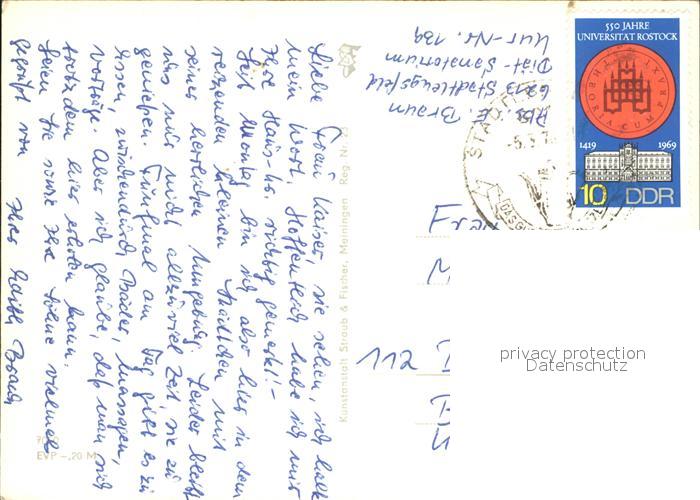 Liebe Frau Kaiser, sie sehen, ich halte
mein Wort. Hoffentlich habe ich mir
Ihre Haus-Nr. richtig gemerkt! -
Seit Montag bin ich also hier in dem
reizenden kleinen Städtchen mit
seiner herrlichen Umgebung. Leider bleibt
uns nur nicht allzuviel Zeit, sie zu
genießen. Fünfmal am Tag gibt es zu
Essen, zwischendurch Bäder, Massagen,
Vorträge. Aber ich glaube, daß man sich
trotzdem hier erholen kann.
Seien Sie sowie Ihre Söhne vielmals
gegrüßt von Ihrer Edith Braun
Kunstanstalt Straub & Fischer, Meiningen Reg. Nr.
EVP -,20 M
Abs. E. Braun
6213 Stadtlengsfeld
Diät-Sanatorium
Kur-Nr. 139
550 JAHRE
UNIVERSITÄT ROSTOCK
1419 1969
10 DDR
112
privacy protection
Datenschutz